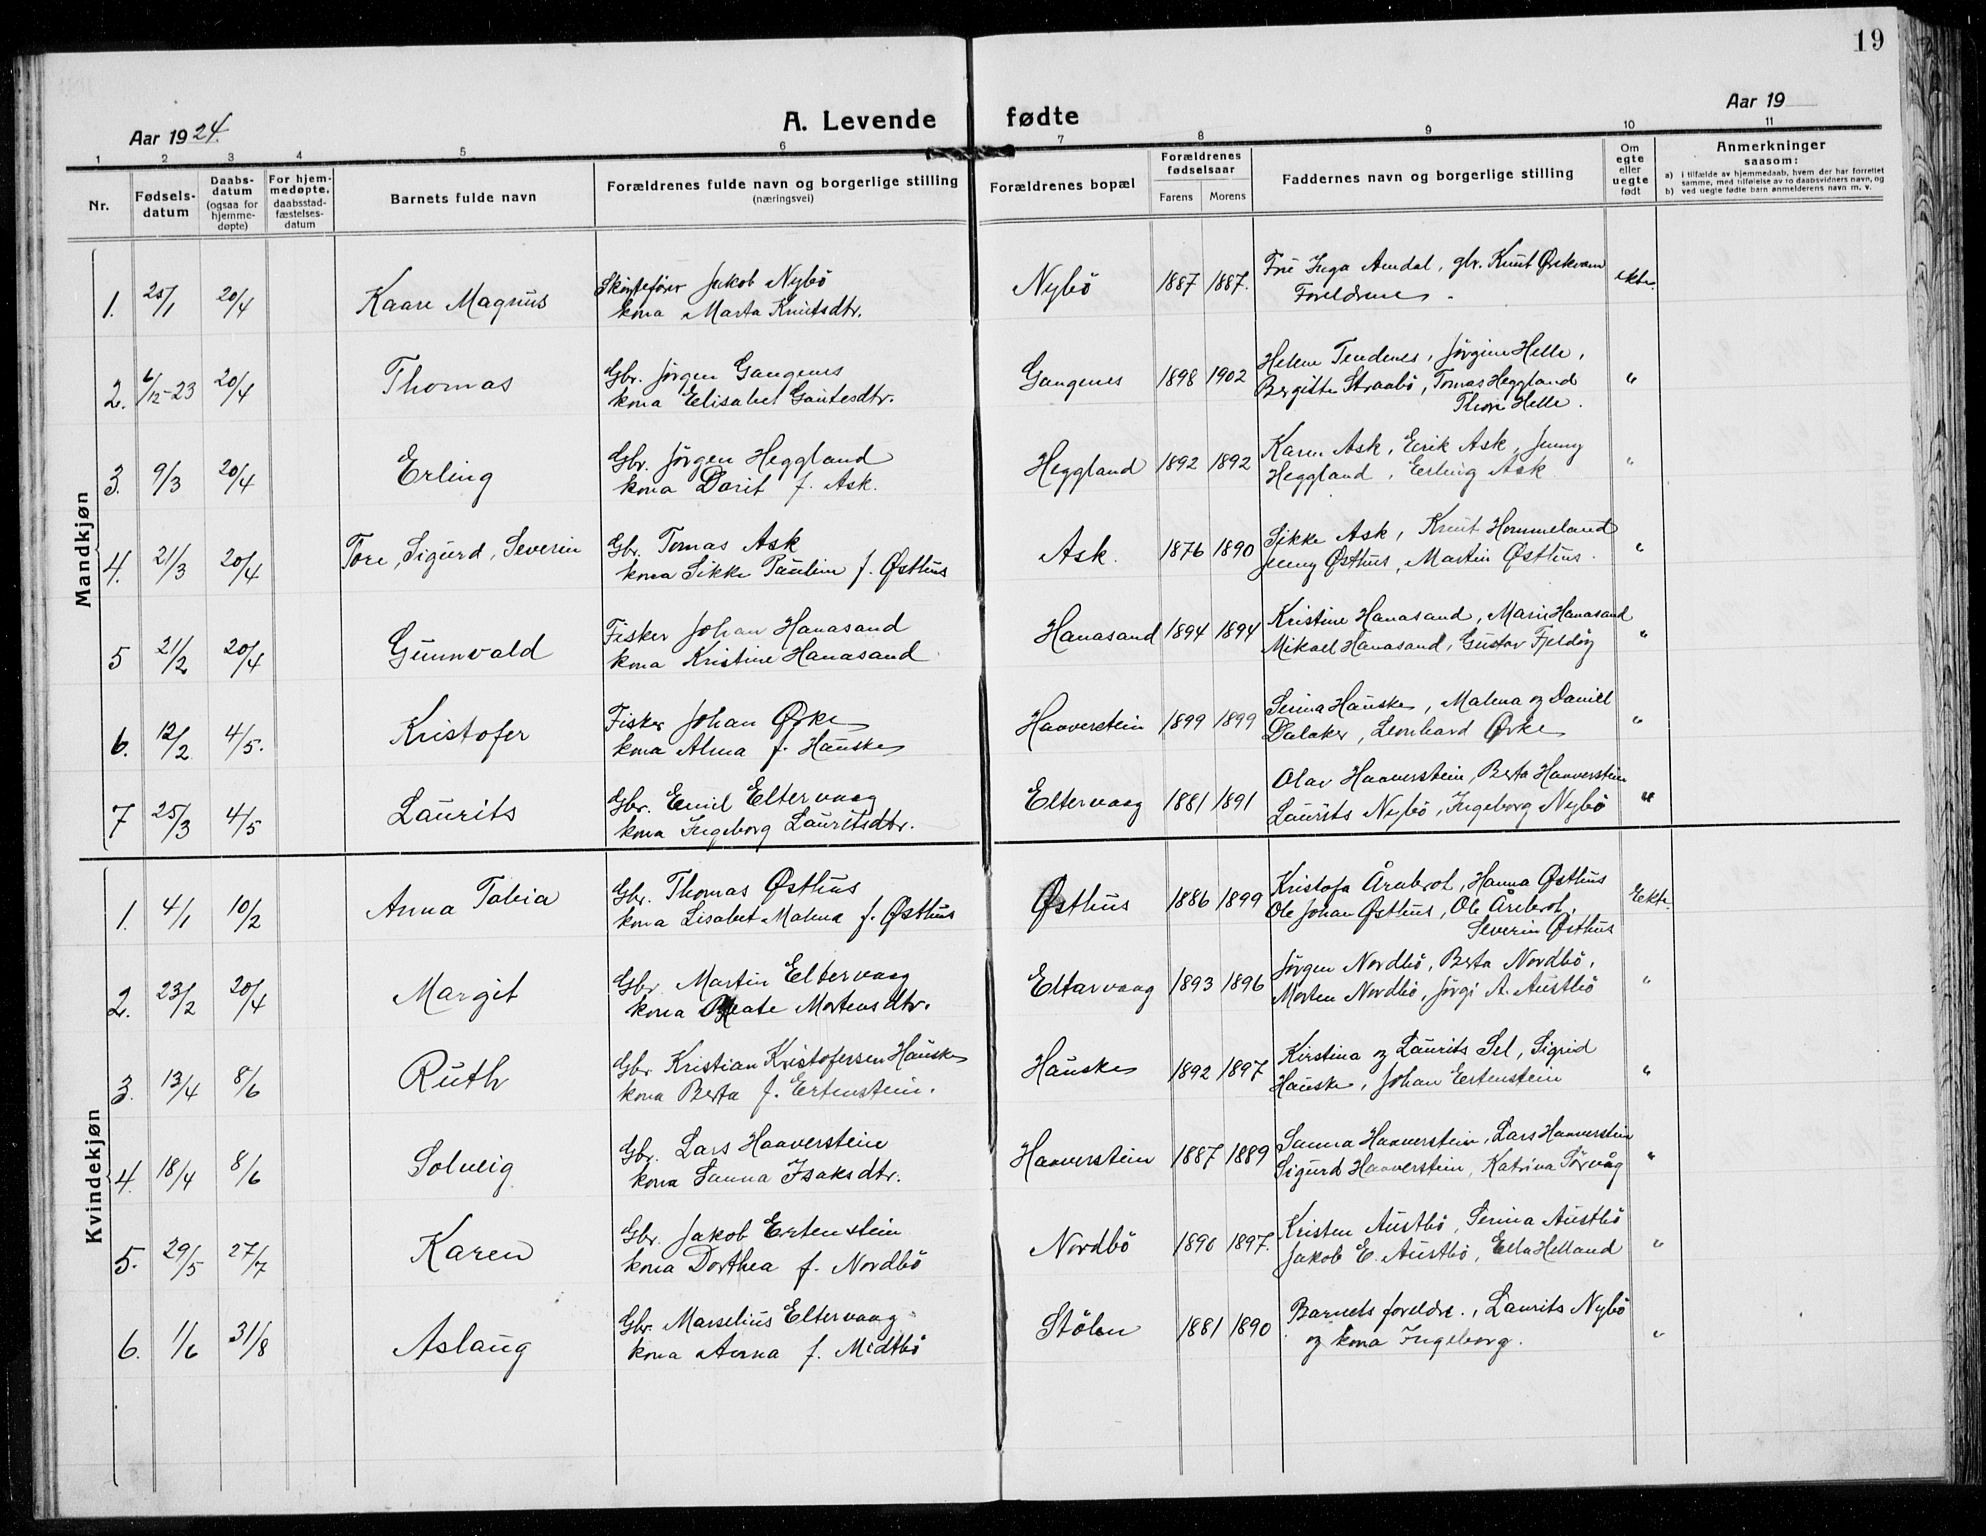 19
Aar 1924.
A. Levende fødte
Aar 19
1 2 3 4 5 6 7 8 9 10 11
Nr.
Fødsels-
datum
Daabs-
datum
(ogsaa for
hjemme-
døpte)
For hjem-
medøpte,
daabsstad-
fæstelses-
datum
Barnets fulde navn
Forældrenes fulde navn og borgerlige stilling
(næringsvei)
Forældrenes bopæl
Forældrenes
fødselsaar
Farens Morens
Faddernes navn og borgerlige stilling
Om
egte
eller
uegte
født
Anmerkninger
saasom:
a) i tilfælde av hjemmedaab, hvem der har forrettet
samme, med tilføielse av to daabsvidners navn, og
b) ved uegte fødte barn anmelderens navn m. v.
Mandkjøn
1. 25/1 20/4 Kaare Magnus
Jakob Nybö
kona Marta Knutsdtr.
Nybö 1887 1887.
Frú Inga, gbr. Knut
Foreldrene.
ekte.
2. 6/12-23 20/4 Thomas
Gbr. Jörgen Gangenes
kona Elisabet Gautesdtr.
Gangenes 1898 1902
Helene Tendenes, Jörgine Helle,
Bergitte Straabö, Tomas Heggland
Thore Helle.
"
3. 9/3 20/4 Erling
Gbr. Jörgen Heggland
kona Dorit f. Ask.
Heggland 1892 1892
Karen Ask, Eirik Ask, Jenny
Heggland, Erling Ask
"
4. 21/3 20/4 Tore, Sigurd, Severin
Gbr. Tomas Ask
kona Sikke Pauline f. Østhus
Ask. 1876 1890
Sikke Ask, Knut Hommeland
Jenny Østhus, Martin Østhus.
"
5 21/2 20/4 Gunnvald
Fisker Johan Hanasand
kona Kristine Hanasand
Hanasand 1894 1894
Kristine Hanasand, Marie Hanasand
Mikael Hanasand, Gustav Fjeldöy
"
6. 12/2 4/5. Kristofer
Fisker Johan Ørke
kona Alma f. Hauske
Haaverstein 1899 1899
Serina Hauske, Malena og Daniel
Dalaker, Leonhard Ørke
"
7 25/3 4/5 Laurits
Gbr. Emil Eltervaag
kona Ingeborg Lauritsdtr.
Eltervaag 1881 1891
Olav Haaverstein, Berta Haaverstein
Laurits Nybö, Ingeborg Nybö
"
Kvindekjøn
1. 4/1 10/2 Anna Tobia
Gbr. Thomas Østhus
kona Lisabet Malena f. Østhus
Østhus 1886 1899
Kristofa Årebrot, Hanna Østhus
Ole Johan Østhus, Ole Årebrot,
Severin Østhus
Ekte.
2. 23/2 20/4 Margit
Gbr. Martin Eltervaag
kona Mortensdtr.
Eltarvaag 1893 1896
Jörgen Nordbö, Berta Nordbö,
Morten Nordbö, Jörgi A. Austbö
"
3. 13/4 8/6 Ruth
Gbr Kristian Kristofersen Hauske
kona Berta f. Ertenstein.
Hauske 1892 1897
Kirstina og Laurits Sel, Sigrid
Hauske, Johan Ertenstein
"
4. 18/4 8/6 Solveig
Gbr. Lars Haaverstein
kona Sanna Isaksdtr.
Haaverstein 1887 1889
Sanna Haaverstein, Lars Haaverstein
Sigurd Haaverstein, Katrina Sörvåg
"
5. 29/5 27/7 Karen
Gbr. Jakob Ertenstein
kona Dorthea f. Nordbö
Nordbö 1890 1897.
Kristen Austbö, Serina Austbö
Jakob E. Austbö, Ella Helland
"
6. 1/6 31/8 Aslaug
Gbr. Marselius Eltervaag
kona Anna f. Midtbö
Stölen 1881 1890
Barnets foreldre., Laurits Nybö
og kona Ingeborg.
"